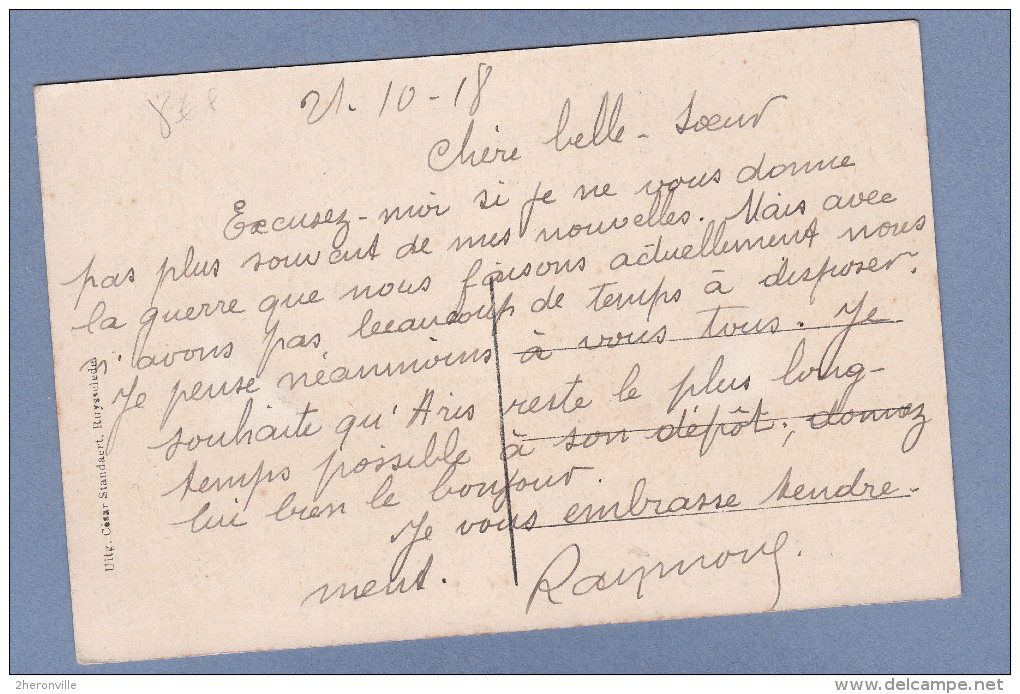 21-10-18
Chère belle-sœur
Excusez-moi si je ne vous donne
pas plus souvent de mes nouvelles. Mais avec
la guerre que nous faisons actuellement nous
n'avons pas beaucoup de temps à disposer.
Je pense néanmoins à vous tous. Je
souhaite qu'Aris reste le plus long-
temps possible à son dépôt; donnez
lui bien le bonjour.
Je vous embrasse tendre-
ment. Raymond.
Uitg. César Standaert, Ruysselede
2heronville
www.delcampe.net